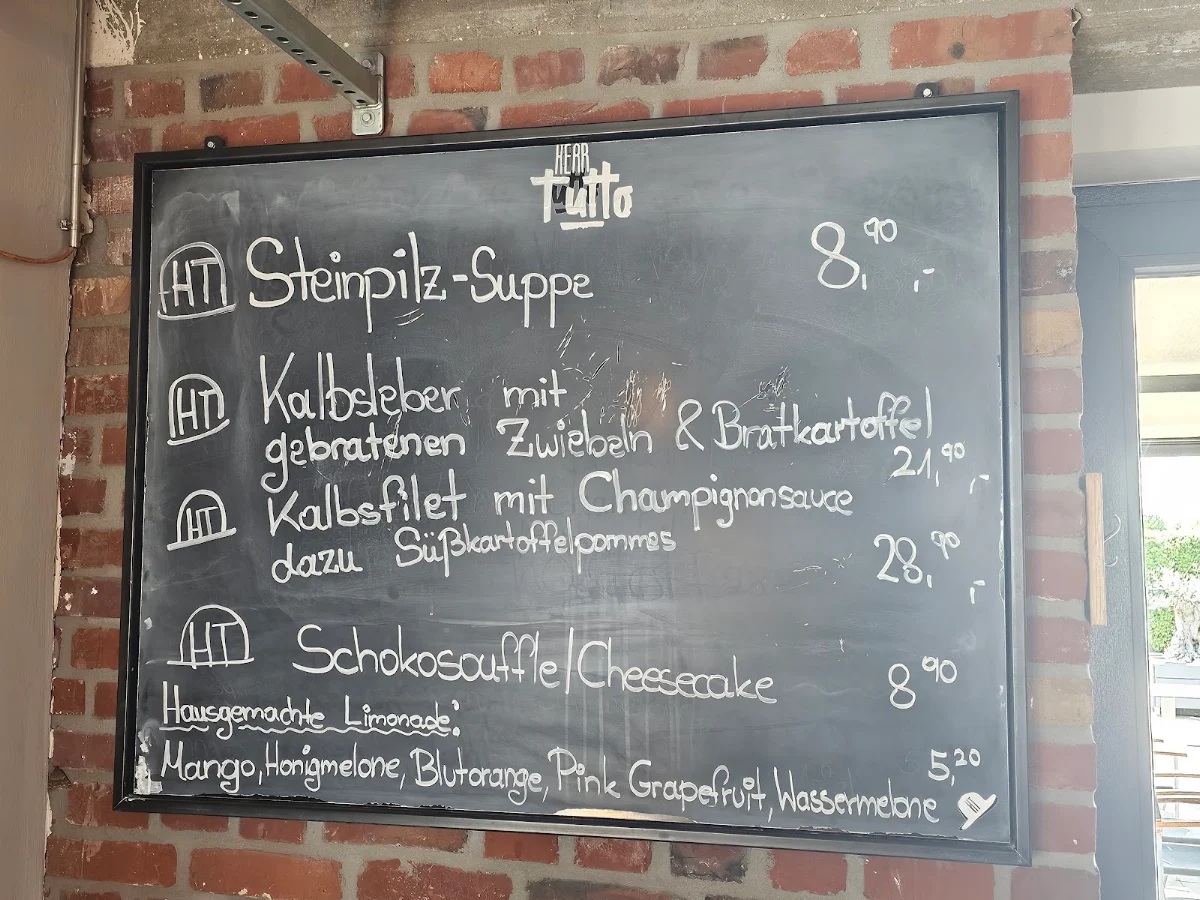 HERR
Tutto
HT Steinpilz-Suppe 8,90 ,-
HT Kalbsleber mit
gebratenen Zwiebeln & Bratkartoffel
21,90 ,-
HT Kalbsfilet mit Champignonsauce
dazu Süßkartoffelpommes 28,90 ,-
HT Schokosouffle/Cheesecake 8 90
Hausgemachte Limonade:
5,20
Mango, Honigmelone, Blutorange, Pink Grapefruit, Wassermelone